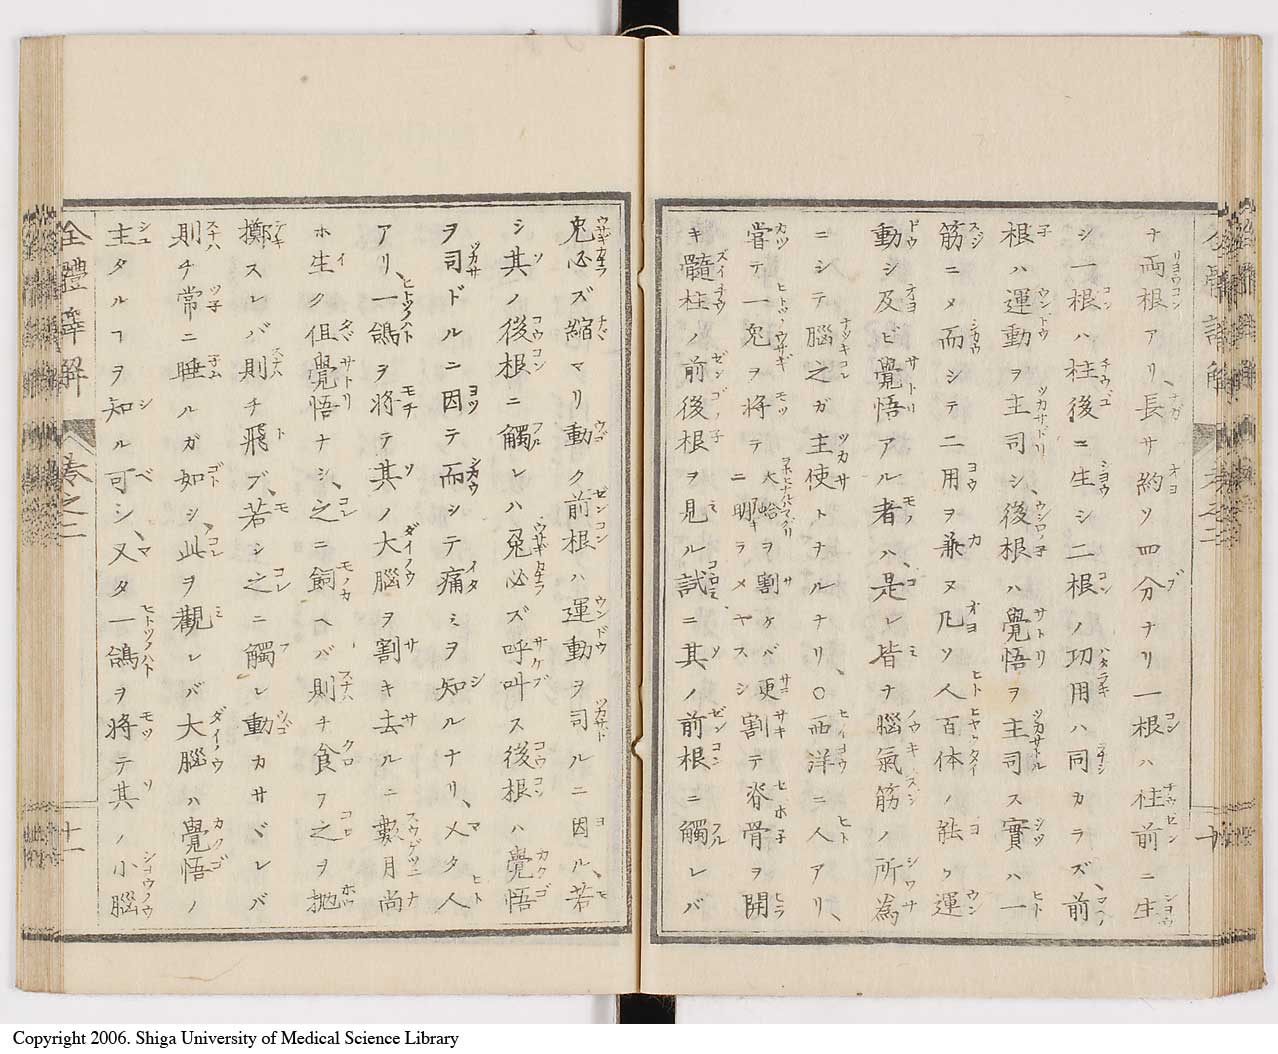 ナ両根アリ、長サ約ソ四分ナリ一根ハ柱前ニ生
シ一根ハ柱後ニ生シ二根ノ功用ハ同カラズ、前
根ハ運動ヲ主司シ、後根ハ覺悟ヲ主司ス實ハ一
筋ニメ而シテ二用ヲ兼ヌ凡ソ人百体ノ能ク運
動シ及ビ覺悟アル者ハ、是レ皆ナ腦氣筋ノ所為
ニシテ腦之ガ主使トナルナリ、○西洋ニ人アリ、
嘗テ一兎ヲ將テ大蛤ヲ割ケバ更ニ明ラメヤスシ割テ脊骨ヲ開
キ髓柱ノ前後根ヲ見ル試ニ其ノ前根ニ觸レバ
兎必ズ縮マリ動ク前根ハ運動ヲ司ルニ因ル、若
シ其ノ後根ニ觸レハ兎必ズ呼叫ス後根ハ覺悟
ヲ司ドルニ因テ而シテ痛ミヲ知ルナリ、又タ人
アリ、一鴿ヲ將テ其ノ大腦ヲ割キ去ルニ數月尚
ホ生ク但覺悟ナシ、之ニ飼ヘバ則チ食フ之ヲ抛
擲スレバ則チ飛ブ、若シ之ニ觸レ動カサヾレバ
則チ常ニ睡ルガ如シ、此ヲ觀レバ大腦ハ覺悟ノ
主タルヿヲ知ル可シ、又タ一鴿ヲ將テ其ノ小腦
全體詳解
卷之二
十一
Copyright 2006. Shiga University of Medical Science Library